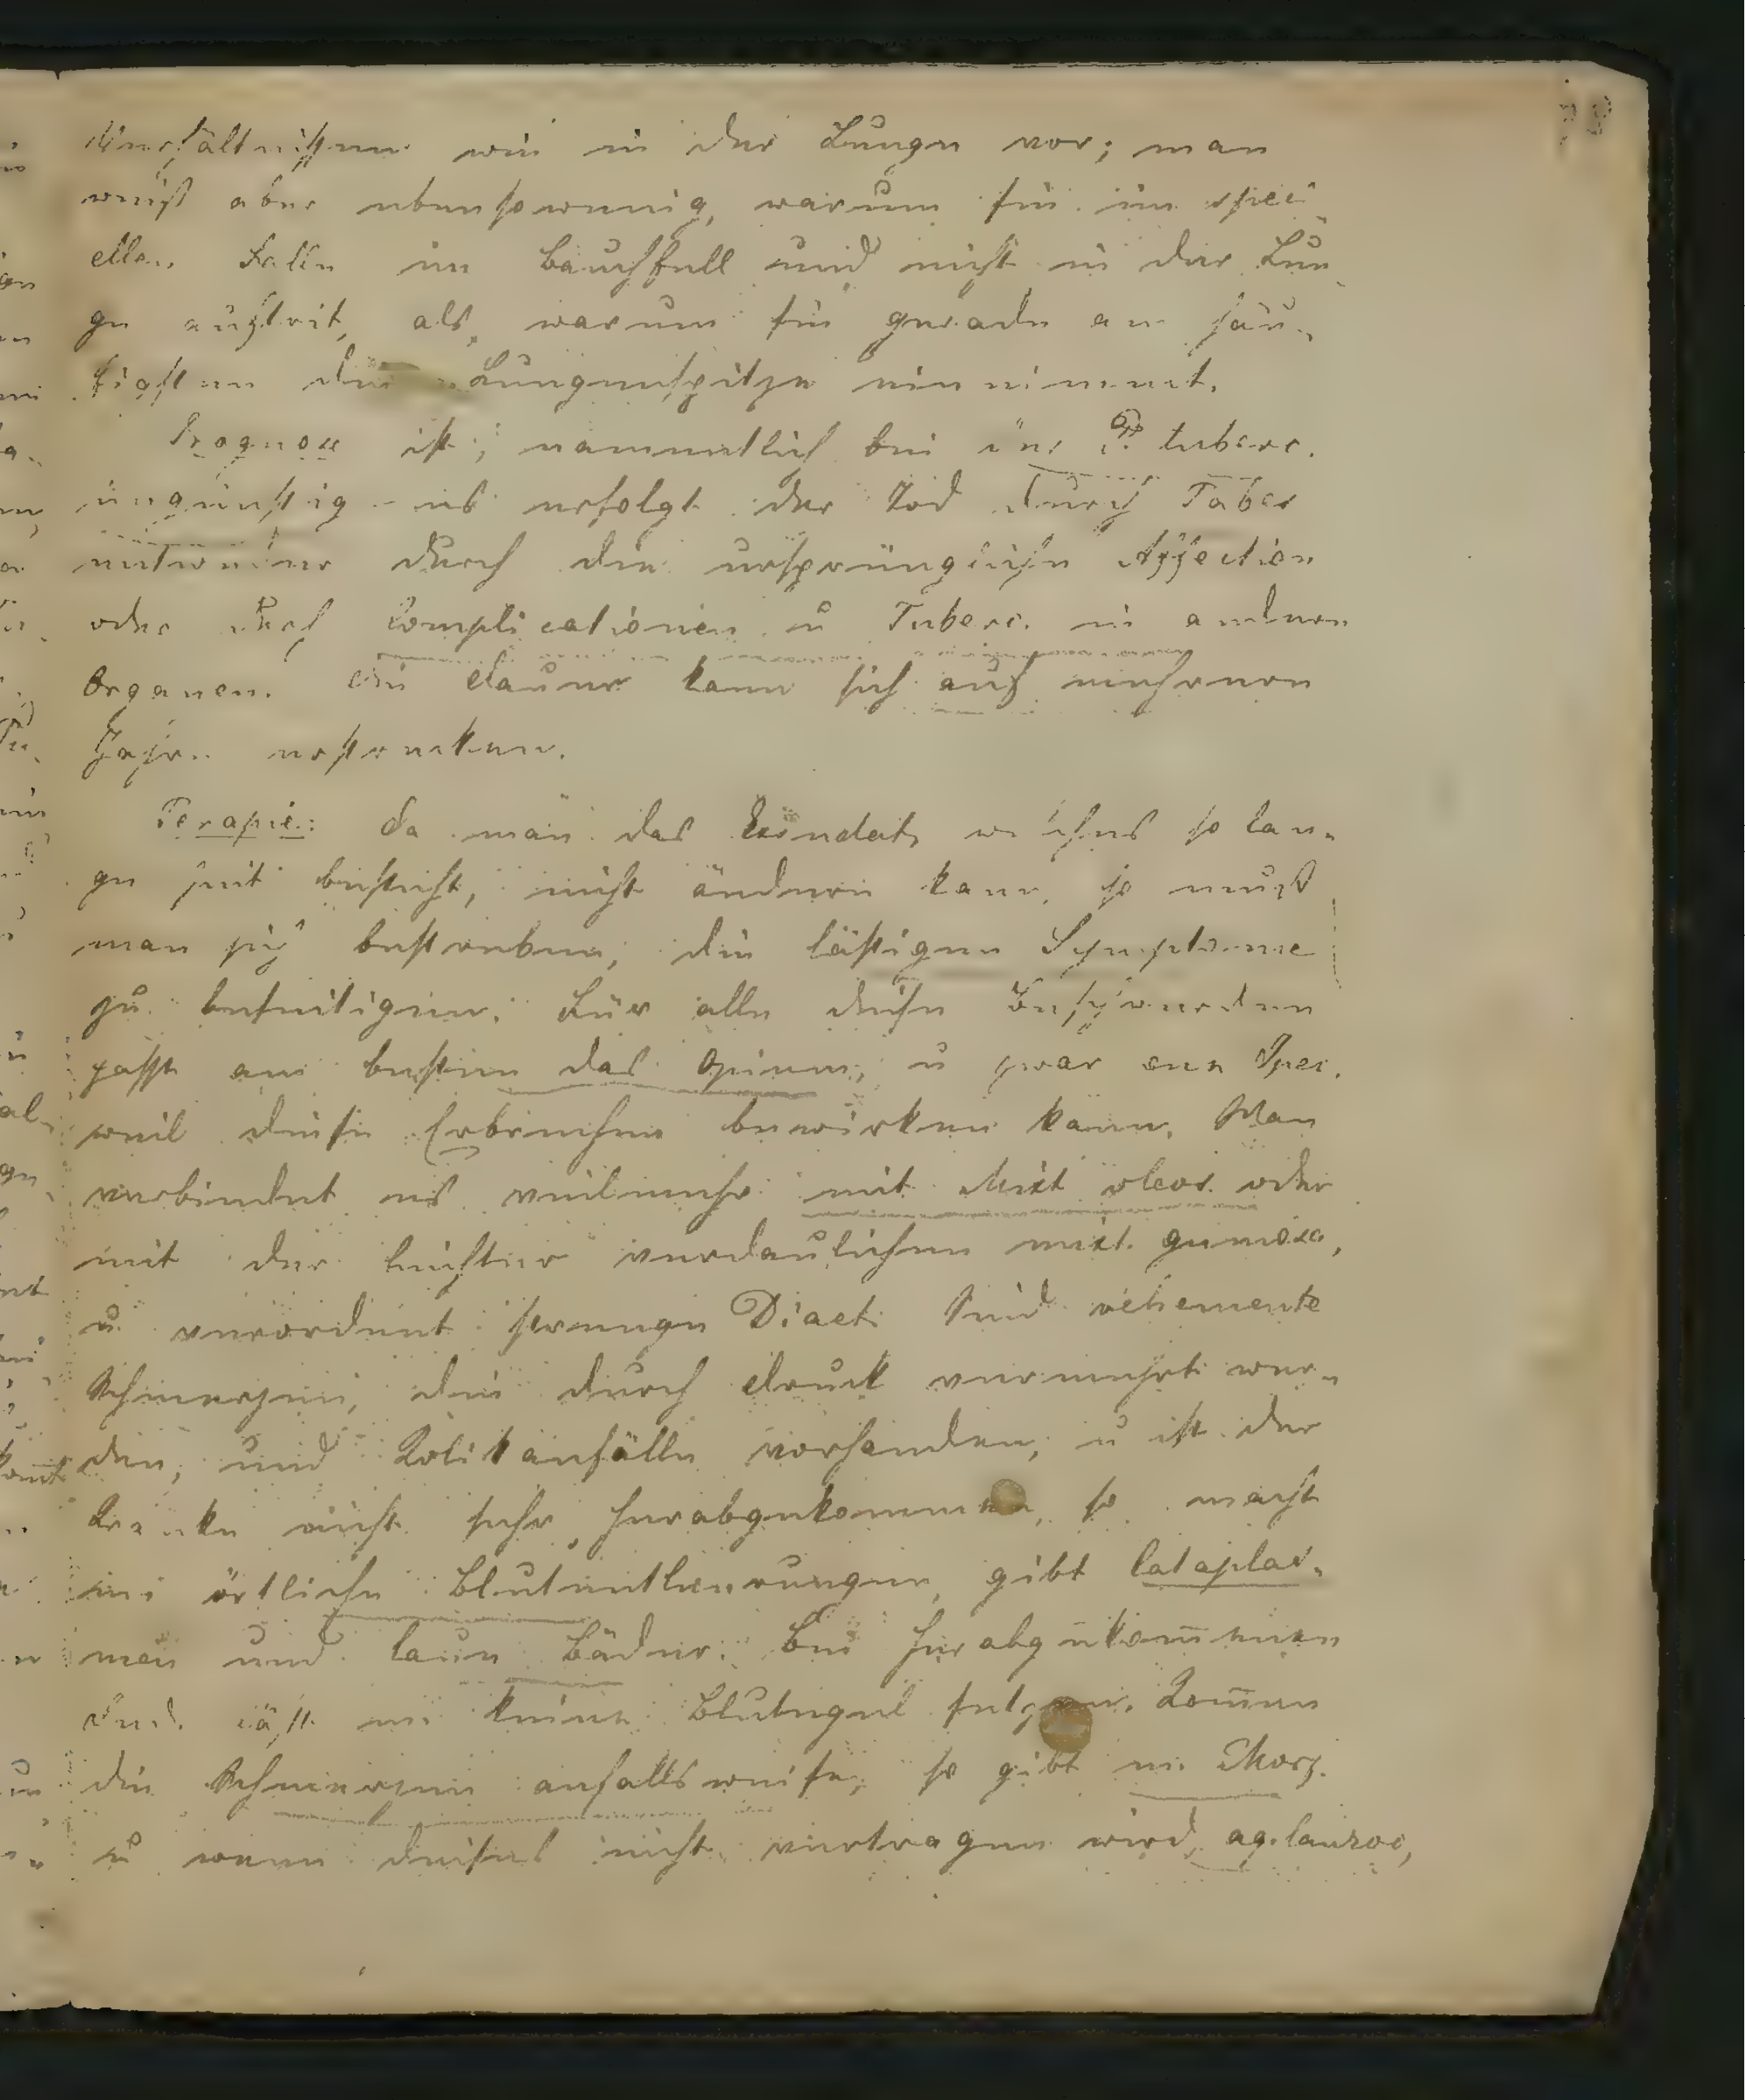 Verhältnißen wie in der Lunge vor; man
weiß aber ebensowenig, warum sie im speci
ellen Falle im Bauchfell und nicht in der Lun
ge auftrit, als, warum sie gerade am häu
figsten die Lungenspitze einnimmt.
Prognose ist, namentlich bei tuberc.
ungünstig – es erfolgt der Tod durch Tabes
entweder durch die ursprüngliche Affection
oder durch Complicationen u Tuberc. in anderen
Organen. Die Dauer kann sich auf mehrere
Jahre erstrecken.
Terapie: Da man das Exsudat, welches so lan
ge Zeit besteht, nicht ändern kann, so muß
man sich bestreben, die lästigen Symptome
zu beseitigen. Für alle diese Beschwerden
paßt am besten das Opium, u zwar one Ipec.
weil diese Erbrechen bewirken kann. Man
verbindet es vielmehr mit Mixt oleos. oder
mit der leichter verdaulichen mixt. gumosa,
u verordnet strenge Diaet. Sind vehemente
Schmerzen, die durch Druck vermehrt wer
den, und Kolikanfälle vorhanden, u ist der
Kranke nicht sehr herabgekommen, so macht
m örtliche Blutentleerungen, gibt Cataplas
men und laue Bäder. Bei herabgekom̅enen
Ind. läßt m keine Blutegel setzen. Kom̅en
die Schmerzen anfallsweise, so gibt m. Morf.
u wenn dieses nicht vertragen wird, aq. lauroc,